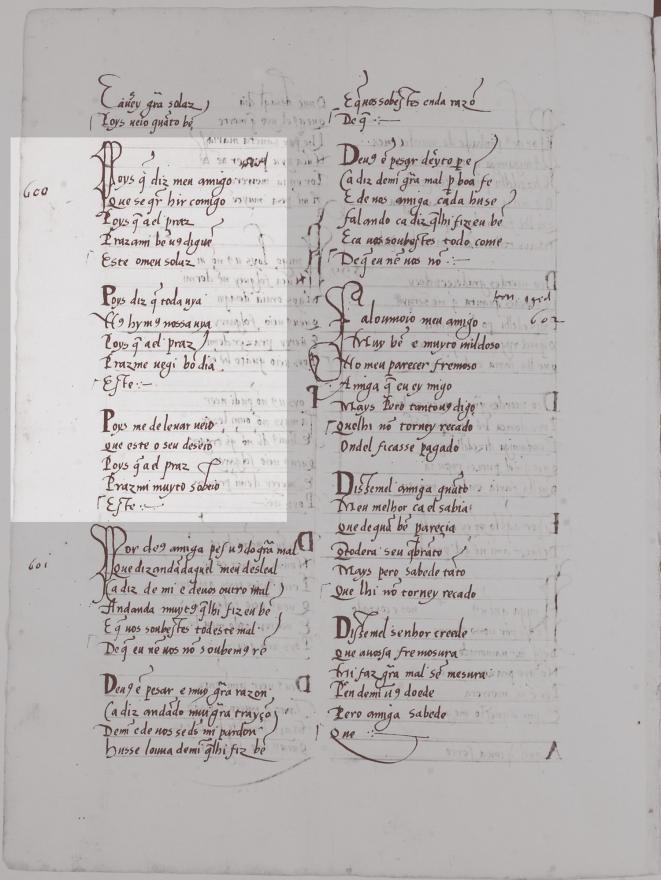 E auerey grã solaz
Poys ueio quãto bẽ
600
Poys q̃ diz meu amigo
Que se qr̃ hir comigo
Poys q̃ a el praz
Praz a mi bẽ u9 digue
Este o meu solaz
Poys diz q̃ toda uya
Poys q̃ a el praz
Praz me uegi bõ dia
Este :~
Poys me de leuar ueio
Que este o seu deseio
Poys q̃ a el praz
Praz mi muyto sobeio
Este :~
601
Por de9 amiga
Ca diz de mi e de uos outro mal
Andand a muyt9 q̃ lhi fiz eu bẽ
E q̃ uos soubestes tod este mal
De q̃ eu nẽ uos nõ soubem9 rẽ
Deu9 ẽ pesar e muy grã razon
Ca diz andãdo muy grã trayçõ
De mi e de uos
Husse louua de mi q̃ lhi fiz bẽ
E que uos sobestes end a razõ
De q̃ :~
Deu9 ẽ pesar
Ca diz de mi grã mal p̃ boa fe
E de uos amiga cada hu se
Falando ca diz q̃ lhi fiz eu bẽ
E ca uos soubestes todo come
De q̃ eu nẽ uos nõ :~
602
Faloumoio meu amigo
Muy bẽ e muyto mildoso
No meu parecer fremoso
Amiga q̃ eu ey migo
Mays pero tanto u9 digo
Que lhi nõ torney recado
Ond el ficasse pagado
Dissemel amiga quãto
Meu melhor ca el sabia
Que de quã bẽ parecia
Que todera seu q̃brãto
Mays pero sabede tãto
Que lhi nõ torney recado
Dissemel senhor creede
Que a uossa fremosura
Mi faz grã mal sẽ mesura
Pen de mi u9 doede
Pero amiga sabede
Que :~